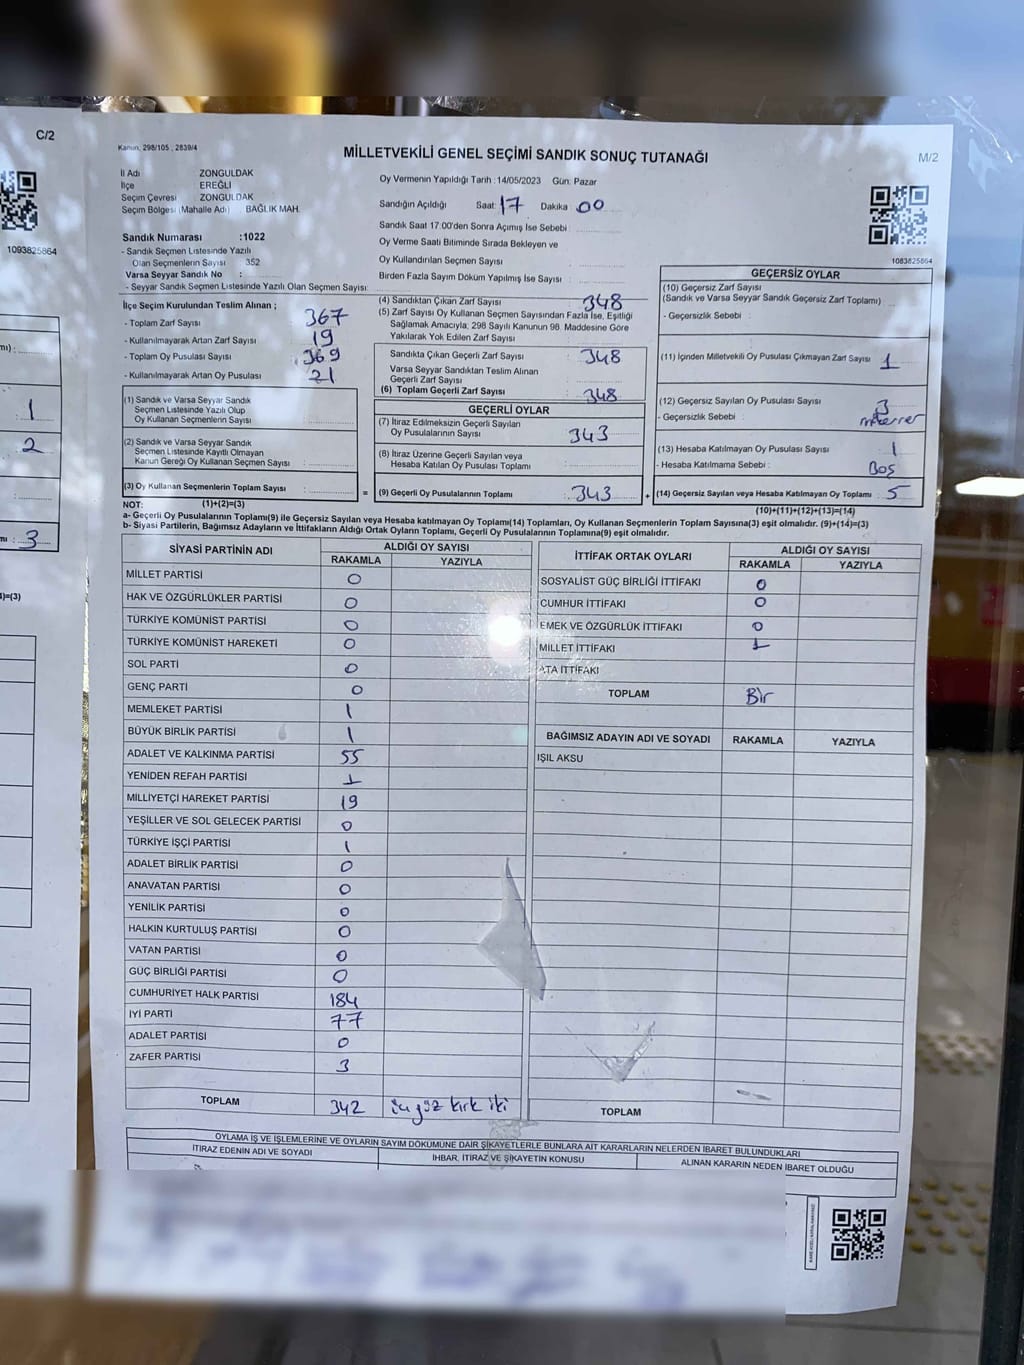 C/2
1093825864
mı):
1
2
mı : 3
4)=(3)
Kanun, 298/105 , 2839/4
MİLLETVEKİLİ GENEL SEÇİMİ SANDIK SONUÇ TUTANAĞI
M/2
İl Adı ZONGULDAK
İlçe EREĞLİ
Seçim Çevresi ZONGULDAK
Seçim Bölgesi (Mahalle Adı) BAĞLIK MAH.
Sandık Numarası :1022
- Sandık Seçmen Listesinde Yazılı
Olan Seçmenlerin Sayısı : 352
Varsa Seyyar Sandık No :
- Seyyar Sandık Seçmen Listesinde Yazılı Olan Seçmen Sayısı:
Oy Vermenin Yapıldığı Tarih :14/05/2023 Gün: Pazar
Sandığın Açıldığı Saat: 17 Dakika 00
Sandık Saat 17:00'den Sonra Açılmış İse Sebebi :
Oy Verme Saati Bitiminde Sırada Bekleyen ve
Oy Kullandırılan Seçmen Sayısı :
Birden Fazla Sayım Döküm Yapılmış İse Sayısı :
1083825864
İlçe Seçim Kurulundan Teslim Alınan ;
- Toplam Zarf Sayısı : 367
- Kullanılmayarak Artan Zarf Sayısı : 19
- Toplam Oy Pusulası Sayısı : 369
- Kullanılmayarak Artan Oy Pusulası : 21
(1) Sandık ve Varsa Seyyar Sandık
Seçmen Listesinde Yazılı Olup
Oy Kullanan Seçmenlerin Sayısı :
(2) Sandık ve Varsa Seyyar Sandık
Seçmen Listesinde Kayıtlı Olmayan
Kanun Gereği Oy Kullanan Seçmen Sayısı :
(3) Oy Kullanan Seçmenlerin Toplam Sayısı :
(1)+(2)=(3)
(4) Sandıktan Çıkan Zarf Sayısı : 348
(5) Zarf Sayısı Oy Kullanan Seçmen Sayısından Fazla İse, Eşitliği
Sağlamak Amacıyla; 298 Sayılı Kanunun 98. Maddesine Göre
Yakılarak Yok Edilen Zarf Sayısı :
Sandıkta Çıkan Geçerli Zarf Sayısı : 348
Varsa Seyyar Sandıktan Teslim Alınan
Geçerli Zarf Sayısı :
(6) Toplam Geçerli Zarf Sayısı : 348
GEÇERLİ OYLAR
(7) İtiraz Edilmeksizin Geçerli Sayılan
Oy Pusulalarının Sayısı : 343
(8) İtiraz Üzerine Geçerli Sayılan veya
Hesaba Katılan Oy Pusulası Toplamı :
= (9) Geçerli Oy Pusulalarının Toplamı : 343 +
GEÇERSİZ OYLAR
(10) Geçersiz Zarf Sayısı
(Sandık ve Varsa Seyyar Sandık Geçersiz Zarf Toplamı) :
- Geçersizlik Sebebi :
(11) İçinden Milletvekili Oy Pusulası Çıkmayan Zarf Sayısı : 1
(12) Geçersiz Sayılan Oy Pusulası Sayısı : 3
- Geçersizlik Sebebi : mükerrer
(13) Hesaba Katılmayan Oy Pusulası Sayısı : 1
- Hesaba Katılmama Sebebi : Boş
(14) Geçersiz Sayılan veya Hesaba Katılmayan Oy Toplamı : 5
(10)+(11)+(12)+(13)=(14)
NOT:
a- Geçerli Oy Pusulalarının Toplamı(9) ile Geçersiz Sayılan veya Hesaba katılmayan Oy Toplamı(14) Toplamları, Oy Kullanan Seçmenlerin Toplam Sayısına(3) eşit olmalıdır. (9)+(14)=(3)
b- Siyasi Partilerin, Bağımsız Adayların ve İttifakların Aldığı Ortak Oyların Toplamı, Geçerli Oy Pusulalarının Toplamına(9) eşit olmalıdır.
SİYASİ PARTİNİN ADI ALDIĞI OY SAYISI
RAKAMLA YAZIYLA
MİLLET PARTİSİ 0
HAK VE ÖZGÜRLÜKLER PARTİSİ 0
TÜRKİYE KOMÜNİST PARTİSİ 0
TÜRKİYE KOMÜNİST HAREKETİ 0
SOL PARTİ 0
GENÇ PARTİ 0
MEMLEKET PARTİSİ 1
BÜYÜK BİRLİK PARTİSİ 1
ADALET VE KALKINMA PARTİSİ 55
YENİDEN REFAH PARTİSİ 1
MİLLİYETÇİ HAREKET PARTİSİ 19
YEŞİLLER VE SOL GELECEK PARTİSİ 0
TÜRKİYE İŞÇİ PARTİSİ 1
ADALET BİRLİK PARTİSİ 0
ANAVATAN PARTİSİ 0
YENİLİK PARTİSİ 0
HALKIN KURTULUŞ PARTİSİ 0
VATAN PARTİSİ 0
GÜÇ BİRLİĞİ PARTİSİ 0
CUMHURİYET HALK PARTİSİ 184
İYİ PARTİ 77
ADALET PARTİSİ 0
ZAFER PARTİSİ 3
TOPLAM 342 üç yüz kırk iki
İTTİFAK ORTAK OYLARI ALDIĞI OY SAYISI
RAKAMLA YAZIYLA
SOSYALİST GÜÇ BİRLİĞİ İTTİFAKI 0
CUMHUR İTTİFAKI 0
EMEK VE ÖZGÜRLÜK İTTİFAKI 0
MİLLET İTTİFAKI 1
ATA İTTİFAKI
TOPLAM Bir
BAĞIMSIZ ADAYIN ADI VE SOYADI RAKAMLA YAZIYLA
IŞIL AKSU
TOPLAM
OYLAMA İŞ VE İŞLEMLERİNE VE OYLARIN SAYIM DÖKÜMÜNE DAİR ŞİKAYETLERLE BUNLARA AİT KARARLARIN NELERDEN İBARET BULUNDUKLARI
İTİRAZ EDENİN ADI VE SOYADI İHBAR, İTİRAZ VE ŞİKAYETİN KONUSU ALINAN KARARIN NEDEN İBARET OLDUĞU